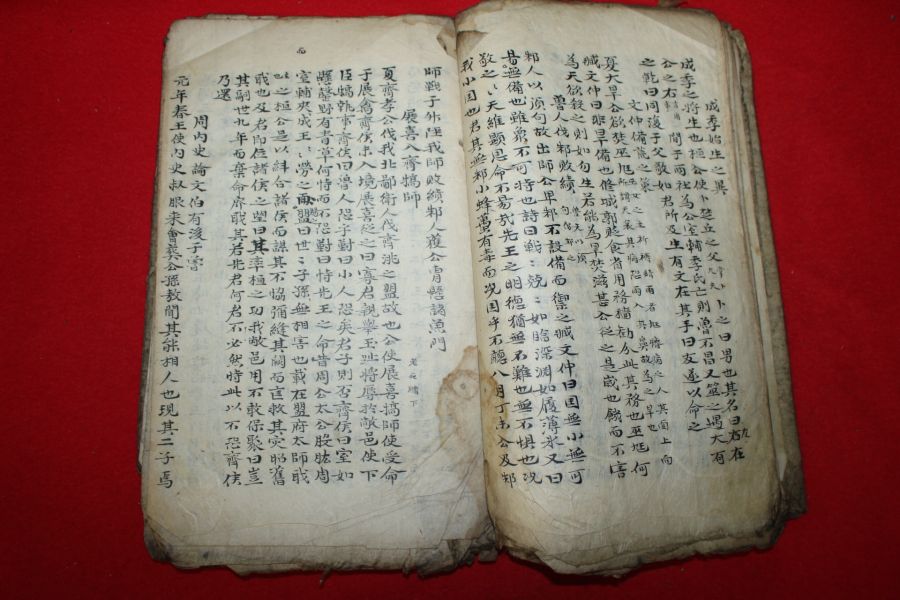 成季始生之異
成季之將生也桓公使卜楚丘之父卜之曰男也其名曰友在
公之右間于兩社為公室輔季氏亡則魯不昌又筮之遇大有
之乾曰同復于父敬如君所及生有文在其手曰友遂以命之
文仲備荒之策
夏大旱公欲焚巫尫
臧文仲曰非旱備也修城郭貶食省用務穡勸分此其務也巫尫何
為天欲殺之則如勿生若能為旱焚滋甚公從之是歲也饑而不害
魯人伐邾敗績
邾人以須句故出師公卑邾不設備而禦之臧文仲曰国無小無可
易無備也雖衆不可恃也詩曰戰：兢：如臨深淵如履薄氷又曰
敬之：天維顯思命不易哉先王之明德猶無不難也無不惧也况
我小国也君其無邾小蜂蠆有毒而况国乎不聽八月丁未公及邾
師戰于升陘我師敗績邾人獲公胄懸諸漁門
展喜入齊犒師
夏齊孝公伐我北鄙衛人伐齊洮之盟故也公使展喜犒師使受命
于展禽齊侯未入境展喜從之曰寡君親舉玉趾將辱於敝邑使下
臣犒執事齊侯曰魯人恐乎對曰小人恐矣君子則否齊侯曰室如
懸罄野有青草何恃而不恐對曰恃先王之命昔周公太公股肱周
室輔夾成王：勞之而賜盟曰世：子孫無相害也載在盟府太師職
之桓公是以糾合諸侯而謀其不協彌縫其闕而匡救其災昭舊
職也及君即位諸侯之望曰其率桓之功我敝邑用不敢保聚曰豈
其嗣世九年而棄命廢職其若先君何君必不然恃此以不恐齊侯
乃還
周内史論文伯有後于魯
元年春王使内史叔服来會葬公孫敖聞其能相人也現其二子焉